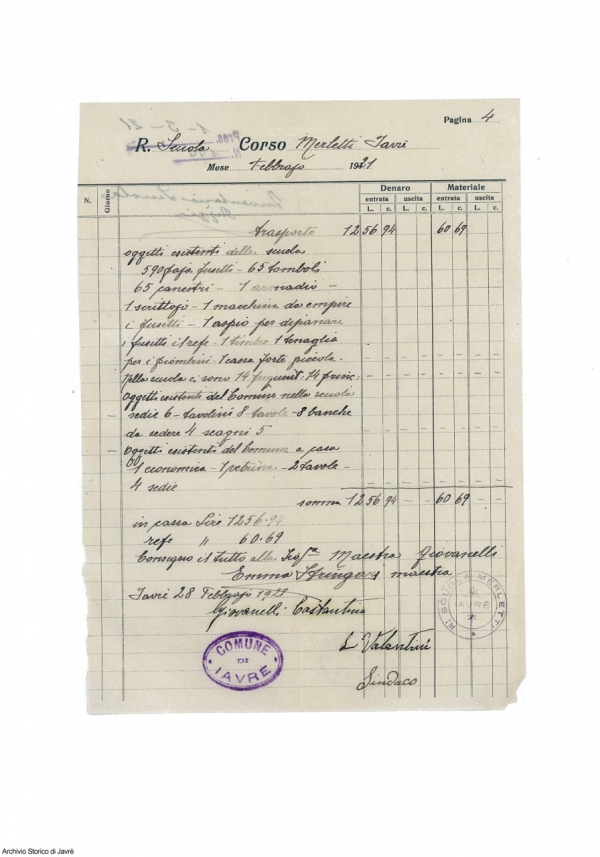 Pagina 4
1-3-21
Pres.
N.
R. Scuola Corso Merletti Javrè
Mese Febbrajo 1921
N. Giorno Denaro Materiale
entrata uscita entrata uscita
L. c. L. c. L. c. L. c.
trasporto 1256 94 60 69
oggetti esistenti della scuola
590 paja fusetti - 65 tomboli
65 canestri - 1 armadio -
1 scrittojo - 1 macchina da empire
i fusetti - 1 aspio per dipanare
1 timbro 1 tenaglia
per i piombini 1 cassa forte piccola.
Nella scuola ci sono 14 14 princ:
Oggetti esistenti del Comune nella scuola
sedie 6 - tavolini 8 tavole - 8 banche
da sedere 4 scagni 5
- Oggetti esistenti del Comune a casa
1 economica - 1 - 2 tavole -
4 sedie
somma 1256 94 60 69
in cassa Lire 1256.94
refe " 60.69
Consegno il tutto alla Sigra Maestra Giovanelli
Emma Stringari maestra
Javrè 28 Febbrajo 1921
Giovanelli Costantina
R. SCUOLA MERLETTI
IAVRÈ
COMUNE
DI
IAVRE
L Valentini
Sindaco
Archivio Storico di Javrè